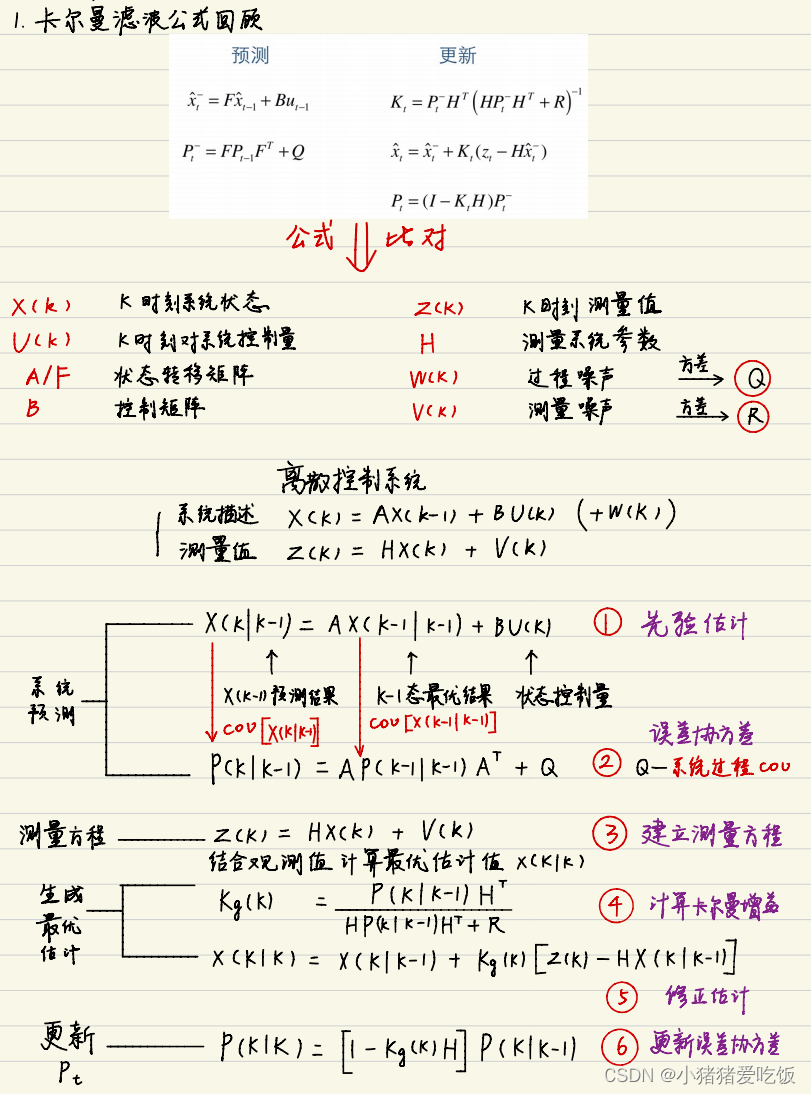 1. 卡尔曼滤波公式回顾
预测 更新
x̂ₜ⁻ = Fx̂ₜ₋₁ + Buₜ₋₁ Kₜ = Pₜ⁻Hᵀ(HPₜ⁻Hᵀ + R)⁻¹
Pₜ⁻ = FPₜ₋₁Fᵀ + Q x̂ₜ = x̂ₜ⁻ + Kₜ(zₜ - Hx̂ₜ⁻)
Pₜ = (I - KₜH)Pₜ⁻
公式 ⇓ 比对
X(k) K时刻系统状态 Z(K) K时刻测量值
U(k) K时刻对系统控制量 H 测量系统参数
A/F 状态转移矩阵 W(K) 过程噪声 方差→ Q
B 控制矩阵 V(K) 测量噪声 方差→ R
离散控制系统
系统描述 X(K) = AX(K-1) + BU(K) (+W(K))
测量值 Z(K) = HX(K) + V(K)
X(K|K-1) = AX(K-1|K-1) + BU(K) ① 先验估计
系统预测
↑ ↑ ↑
X(K-1)预测结果 K-1态最优结果 状态控制量
cov[X(K|K-1)] cov[X(K-1|K-1)]
误差协方差
P(K|K-1) = AP(K-1|K-1)Aᵀ + Q ② Q—系统过程cov
测量方程 Z(K) = HX(K) + V(K) ③ 建立测量方程
结合观测值计算最优估计值 X(K|K)
生成最优估计
Kg(K) = P(K|K-1)Hᵀ / HP(K|K-1)Hᵀ + R ④ 计算卡尔曼增益
X(K|K) = X(K|K-1) + Kg(K)[Z(K) - HX(K|K-1)]
⑤ 修正估计
更新Pₜ P(K|K) = [1 - Kg(K)H] P(K|K-1) ⑥ 更新误差协方差
CSDN @小猪猪爱吃饭